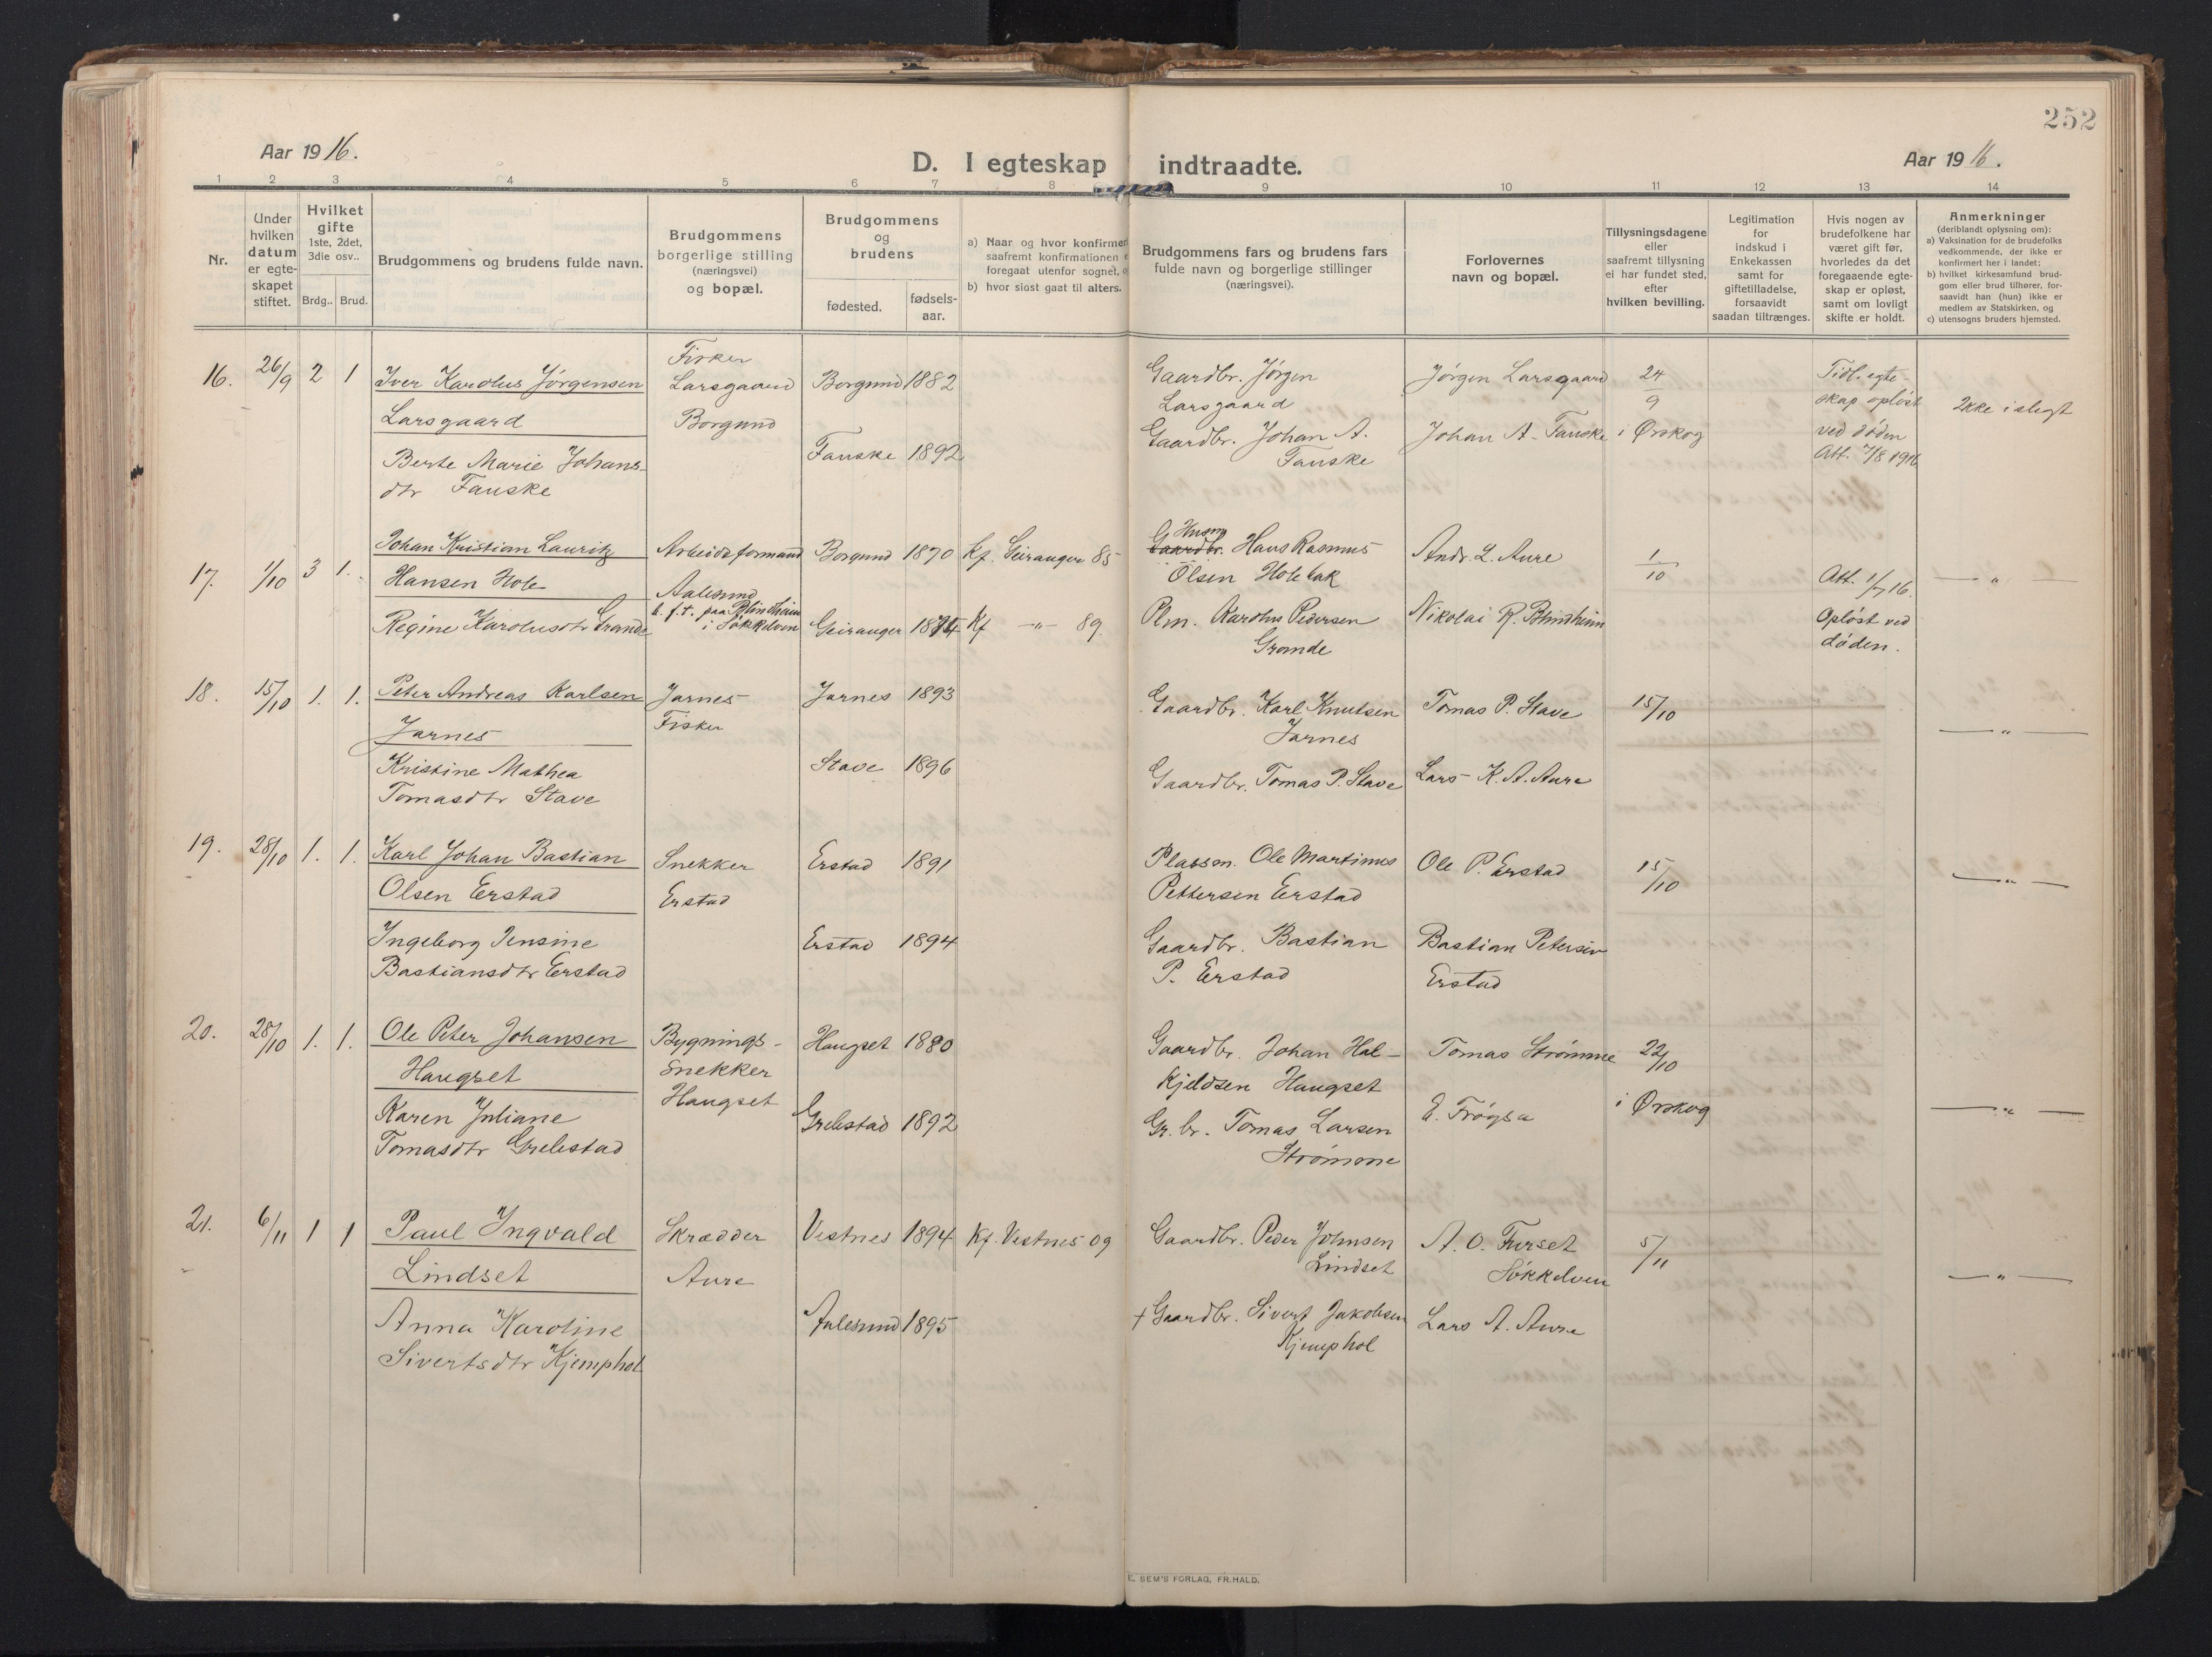 252
Aar 1916.
D. I egteskap indtraadte.
Aar 1916.
1 2 3 4 5 6 7 8 9 10 11 12 13 14
Nr.
Under
hvilken
datum
er egte-
skapet
stiftet.
Hvilket
gifte
1ste, 2det,
3die osv..
Brdg.. Brud.
Brudgommens og brudens fulde navn.
Brudgommens
borgerlige stilling
(næringsvei)
og bopæl.
Brudgommens
og
brudens
fødested.
fødsels-
aar.
a) Naar og hvor konfirmer
saafremt konfirmationen
foregaat utenfor sognet,
b) hvor sidst gaat til alters.
Brudgommens fars og brudens fars
fulde navn og borgerlige stillinger
(næringsvei).
Forlovernes
navn og bopæl.
Tillysningsdagene
eller
saafremt tillysning
ei har fundet sted,
efter
hvilken bevilling.
Legitimation
for
indskud i
Enkekassen
samt for
giftetilladelse,
forsaavidt
saadan tiltrænges.
Hvis nogen av
brudefolkene har
været gift før,
hvorledes da det
foregaaende egte-
skap er opløst,
samt om lovligt
skifte er holdt.
Anmerkninger
(deriblandt oplysning om):
a) Vaksination for de brudefolks
vedkommende, der ikke er
konfirmert her i landet;
b) hvilket kirkesamfund brud-
gom eller brud tilhører, for-
saavidt han (hun) ikke er
medlem av Statskirken, og
c) utensogns bruders hjemsted.
16. 26/9 2 1
Iver Karolus Jørgensen
Larsgaard
Berte Marie Johans-
dtr Fauske
Fisker
Larsgaard
Borgund
Borgund 1882
Fauske 1892
Gaardbr. Jørgen
Larsgaard
Gaardbr. Johan A.
Fauske
Jørgen Larsgaard
Johan A. Fauske
24
9
i Ørskog
Tidl. egte
skap opløst
ved døden
Att. 7/8 1916
Ikke i slegt
17. 1/10 3 1.
Johan Kristian Lauritz
Hansen Hole
Regine Karolusdtr Grande
Arbeidsformand
Aalesund
d. f. t. paa Blindheim
i Søkkelven
Borgund 1870
Geiranger 1874
Kf. Geiranger 85
Kf -"- 89.
Husm
Gaardbr. Hans Rasmus
Olsen Holebak
Plm. Karolus Pedersen
Grande
Andr. L. Aure
Nikolai R. Blindheim
1
10
Att. 1/7 16.
Opløst ved
døden.
— " —
18. 15/10 1. 1.
Peter Andreas Karlsen
Jarnes
Kristine Mathea
Tomasdtr Stave
Jarnes
Fisker
Jarnes 1893
Stave 1896
Gaardbr. Karl Knutsen
Jarnes
Gaardbr. Tomas P. Stave
Tomas P. Stave
Lars K. A. Aure
15/10
— " —
19. 28/10 1. 1.
Karl Johan Bastian
Olsen Erstad
Ingeborg Jensine
Bastiansdtr Erstad
Snekker
Erstad
Erstad 1891
Erstad 1894
Plassm. Ole Martinus
Pettersen Erstad
Gaardbr. Bastian
P. Erstad
Ole P. Erstad
Bastian Petersen
Erstad
15/10
— " —
20. 28/10 1. 1.
Ole Peter Johansen
Haugset
Karen Juliane
Tomasdtr Grebstad
Bygnings-
Snekker
Haugset
Haugset 1880
Grebstad 1892
Gaardbr. Johan Hal-
kjeldsen Haugset
Gr. br. Tomas Larsen
Strømme
Tomas Strømme
E. Frøysa
22/10
i Ørskog
— " —
21. 6/11 1 1
Paul Ingvald
Lindset
Anna Karoline
Sivertsdtr Kjemphol
Skrædder
Aure
Vestnes 1894
Aalesund 1895
Kf. Vestnes 09
Gaardbr. Peder Johnsen
Lindset
+ Gaardbr. Sivert Jakobsen
Kjemphol
A. O. Furset
Søkkelven
Lars A. Aure
5/11
— " —
E. SEM'S FORLAG, FR.HALD.